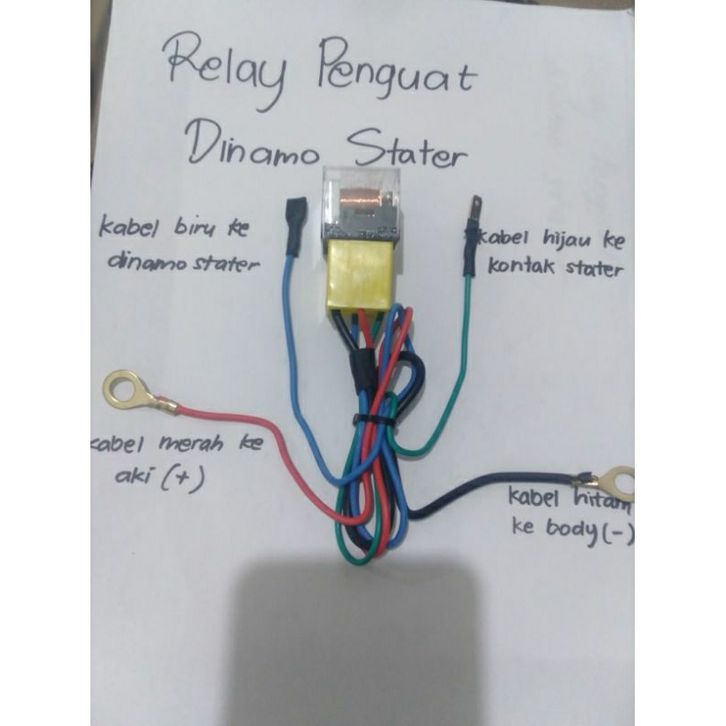 Relay Penguat
Dinamo Stater
kabel biru ke
dinamo stater
kabel hijau ke
kontak stater
kabel merah ke
aki (+)
kabel hitam
ke body (-)